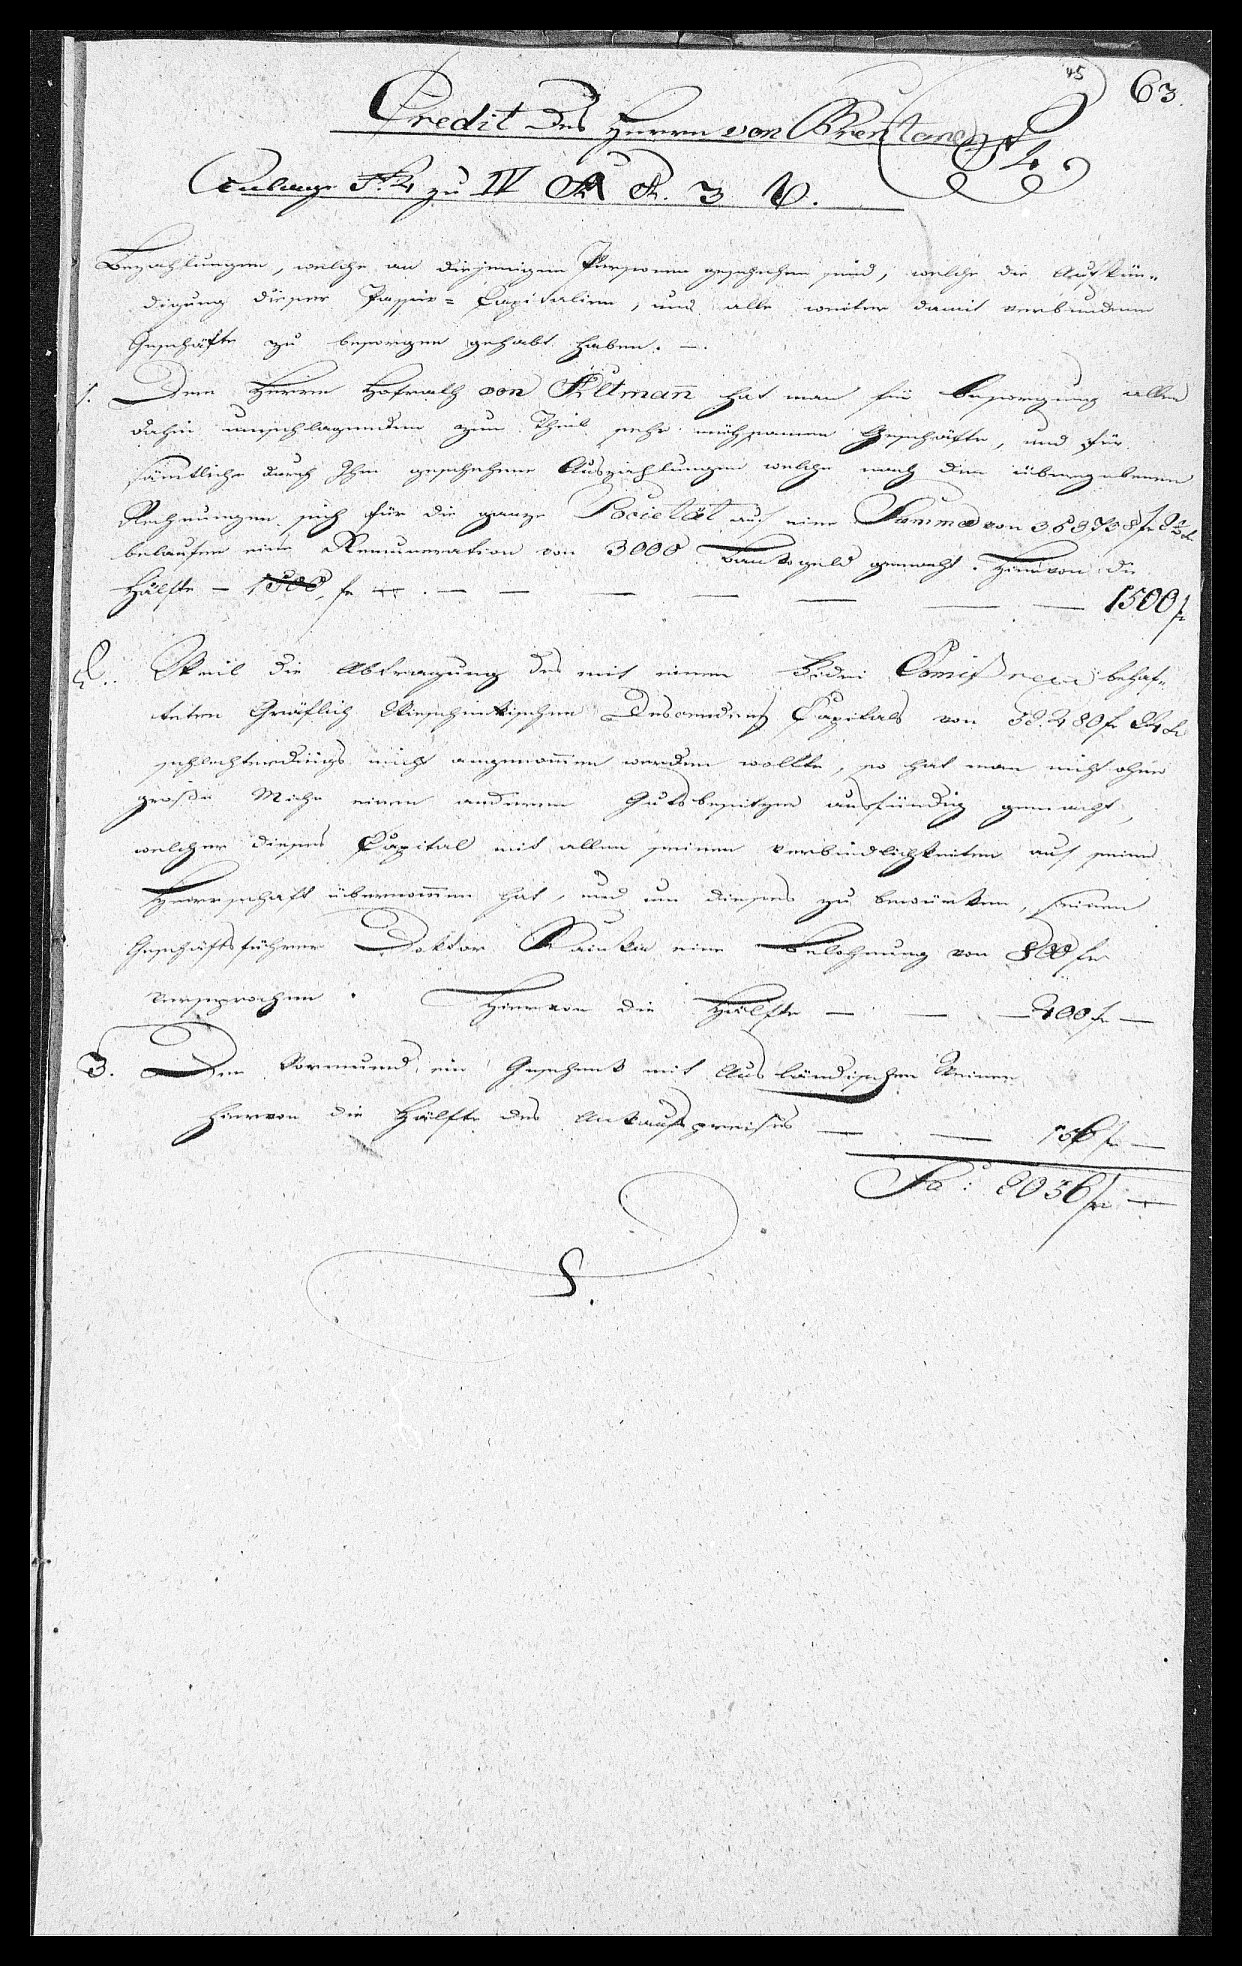 45
63.
Credit des Herrn von Brentano
F 4.
Anlage F. 4 zu IV 3
Bezahlungen, welche an diejenigen Personen geschehen sind, welche die Aufkün-
digung dieser Passiv-Capitalien, und alle weiter damit verbundene
Geschäfte zu besorgen gehabt haben. —.
1. Dem Herrn Hofrath von Altmann hat man für Besorgung aller
dahin einschlagenden zum Theil sehr mühsamen Geschäfte, und für
sämtliche durch Ihn geschehene Auszahlungen welche nach den übergebenen
Rechnungen sich für die ganze Societät auf eine Summa von 369738 f
belaufen eine Remuneration von 3000 gemacht. Hievon die
Hälfte — 1500 f — — — — — — 1500 f
2. Weil die Abtragung des mit einem Fidei Comiß nexu behaf-
teten Gräflich Capitals von 32.280 f 24 x
schlechterdings nicht angenommen werden wollte, so hat man nicht ohne
große Mühe einen anderen Gutsbesitzer ausfündig gemacht,
welcher dieses Capital mit allen seinen Verbindlichkeiten auf seine
Herrschaft übernommen hat, und um dieses zu bewürken, seinem
Geschäftsführer Doktor eine Belohnung von 800 f
versprochen. Hievon die Hälfte — — — 400 f —
3. Dem Vormund ein Geschenk mit Ausländischen Weinen
hievon die Hälfte des Ankaufspreises — — 136 f —
Sa: 2036 f —
S.